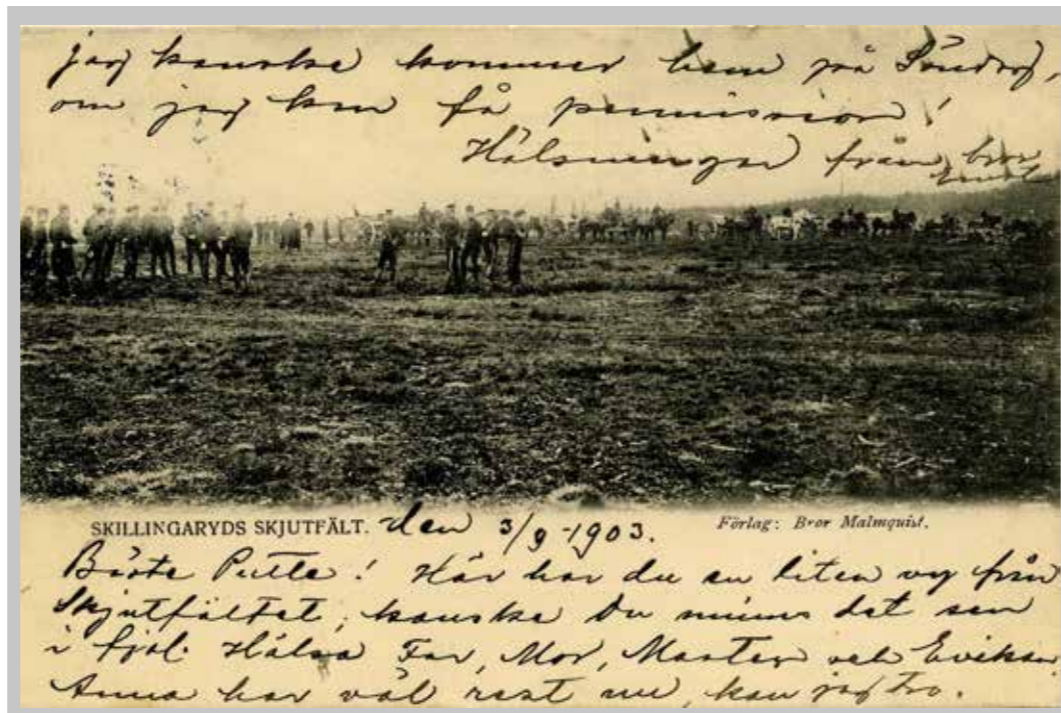 jag kanske kommer hem på Söndag,
om jag kan få permission!
Hälsningar från bror
SKILLINGARYDS SKJUTFÄLT. den 3/9-1903.
Förlag: Bror Malmquist.
Bäste Putte! Här har du en liten vy från
Skjutfältet, kanske Du minns det sen
i fjol. Hälsa Far, Mor, Moster och
Anna har väl rest nu, kan jag tro.